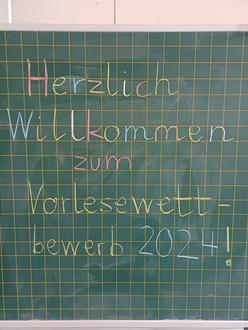 Herzlich
Willkommen
zum
Vorlesewett-
bewerb 2024!